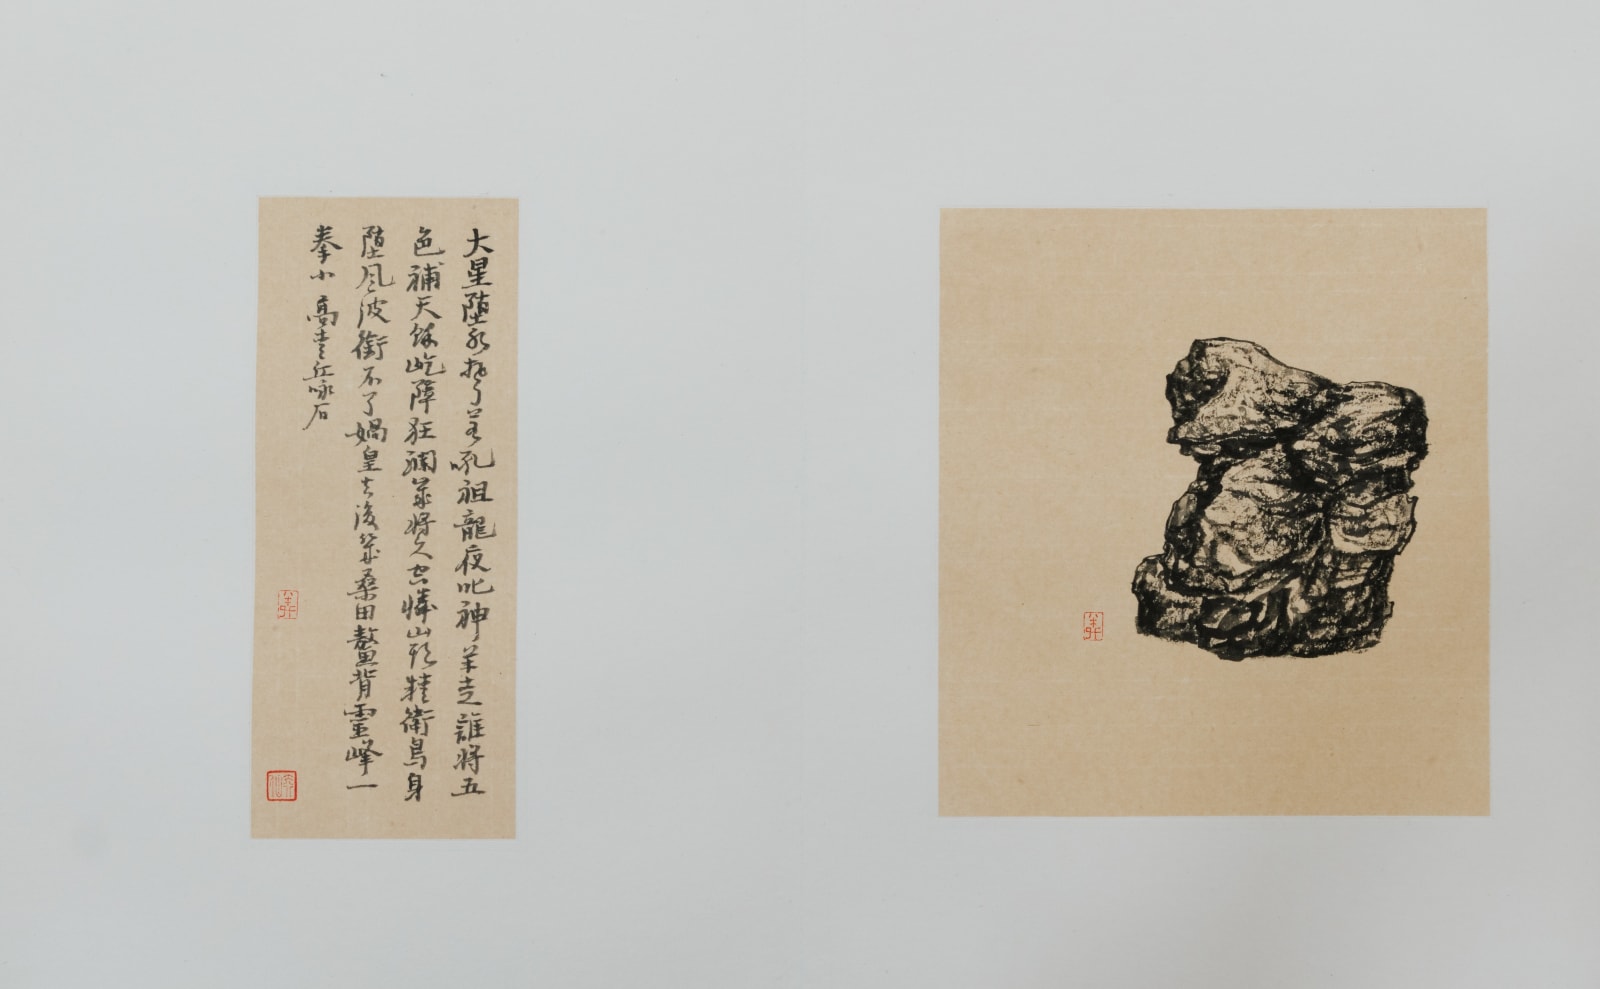 大星墮水芒吼祖龍夜叱神羊走誰將五
色補天餘屹障狂瀾將久空憐山頭精衛鳥身
墮風波銜不了媧皇去後幾桑田鰲背靈峰一
拳小 高青丘咏石